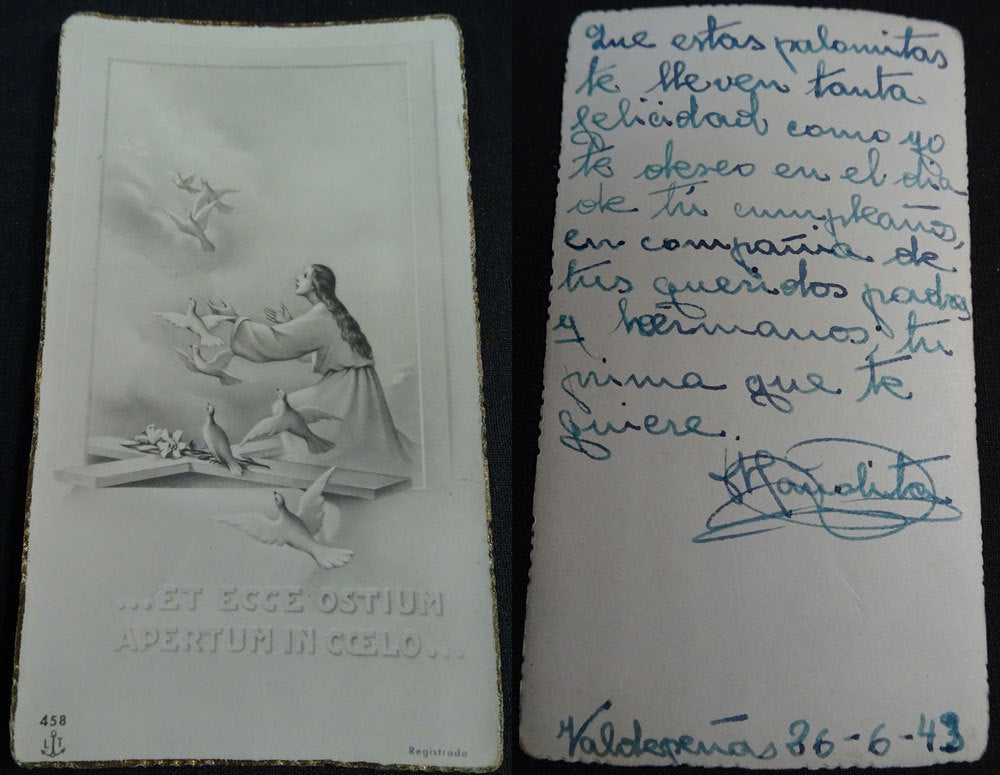 ...ET ECCE OSTIUM
APERTUM IN CŒLO...
458
LI
Registrado
Que estas palomitas
te lleven tanta
felicidad como yo
te deseo en el dia
de tú cumpleaños,
en compañia de
tus queridos padres
y hermanos, tú
prima que te
quiere.
Manolita
Valdepeñas 26-6-43